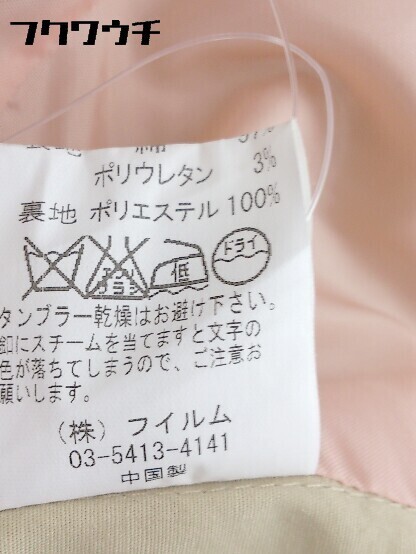 フクワウチ
表地 綿 97%
ポリウレタン 3%
裏地 ポリエステル 100%
エンソ
サラシ 低 ドライ
タンブラー乾燥はお避け下さい。
釦にスチームを当てますと文字の
色が落ちてしまうので、ご注意お
願いします。
(株) フイルム
03-5413-4141
中国製